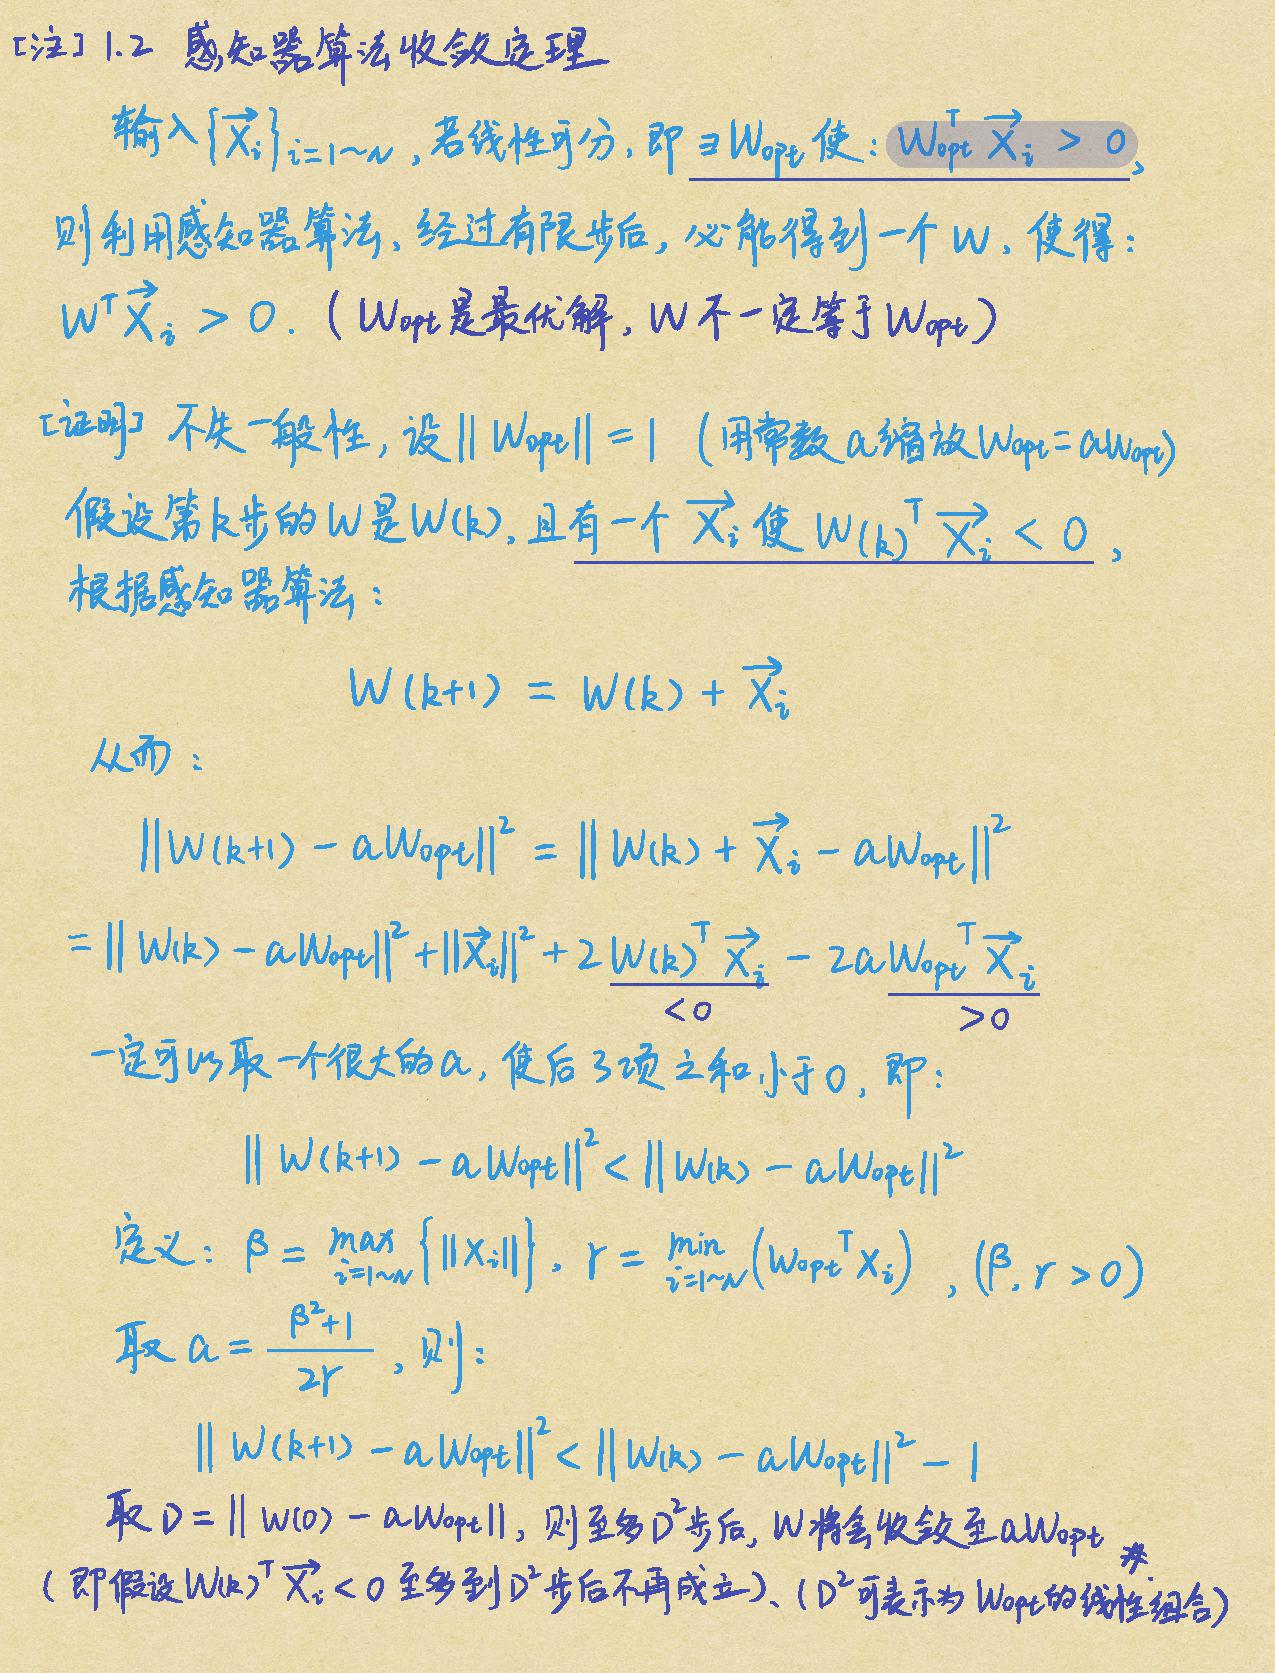 [注] 1.2 感知器算法收敛定理
输入{X⃗ᵢ}ᵢ₌₁~N, 若线性可分, 即∃Wopt使: Woptᵀ X⃗ᵢ > 0,
则利用感知器算法, 经过有限步后, 必能得到一个W, 使得:
Wᵀ X⃗ᵢ > 0. (Wopt是最优解, W不一定等于Wopt)
[证明] 不失一般性, 设||Wopt|| = 1 (用常数a缩放Wopt=aWopt)
假设第k步的W是W(k), 且有一个X⃗ᵢ使W(k)ᵀ X⃗ᵢ < 0,
根据感知器算法:
W(k+1) = W(k) + X⃗ᵢ
从而:
||W(k+1) - aWopt||² = ||W(k) + X⃗ᵢ - aWopt||²
= ||W(k) - aWopt||² + ||X⃗ᵢ||² + 2W(k)ᵀ X⃗ᵢ - 2aWoptᵀ X⃗ᵢ
<0 >0
一定可以取一个很大的a, 使后3项之和小于0, 即:
||W(k+1) - aWopt||² < ||W(k) - aWopt||²
定义: β = max i=1~N {||Xᵢ||}, r = min i=1~N (Woptᵀ Xᵢ), (β, r > 0)
取 a = (β²+1)/2r, 则:
||W(k+1) - aWopt||² < ||W(k) - aWopt||² - 1
取D = ||W(0) - aWopt||, 则至多D²步后, W将会收敛至aWopt #.
(即假设W(k)ᵀ X⃗ᵢ < 0 至多到D²步后不再成立)、(D²可表示为Wopt的线性组合)